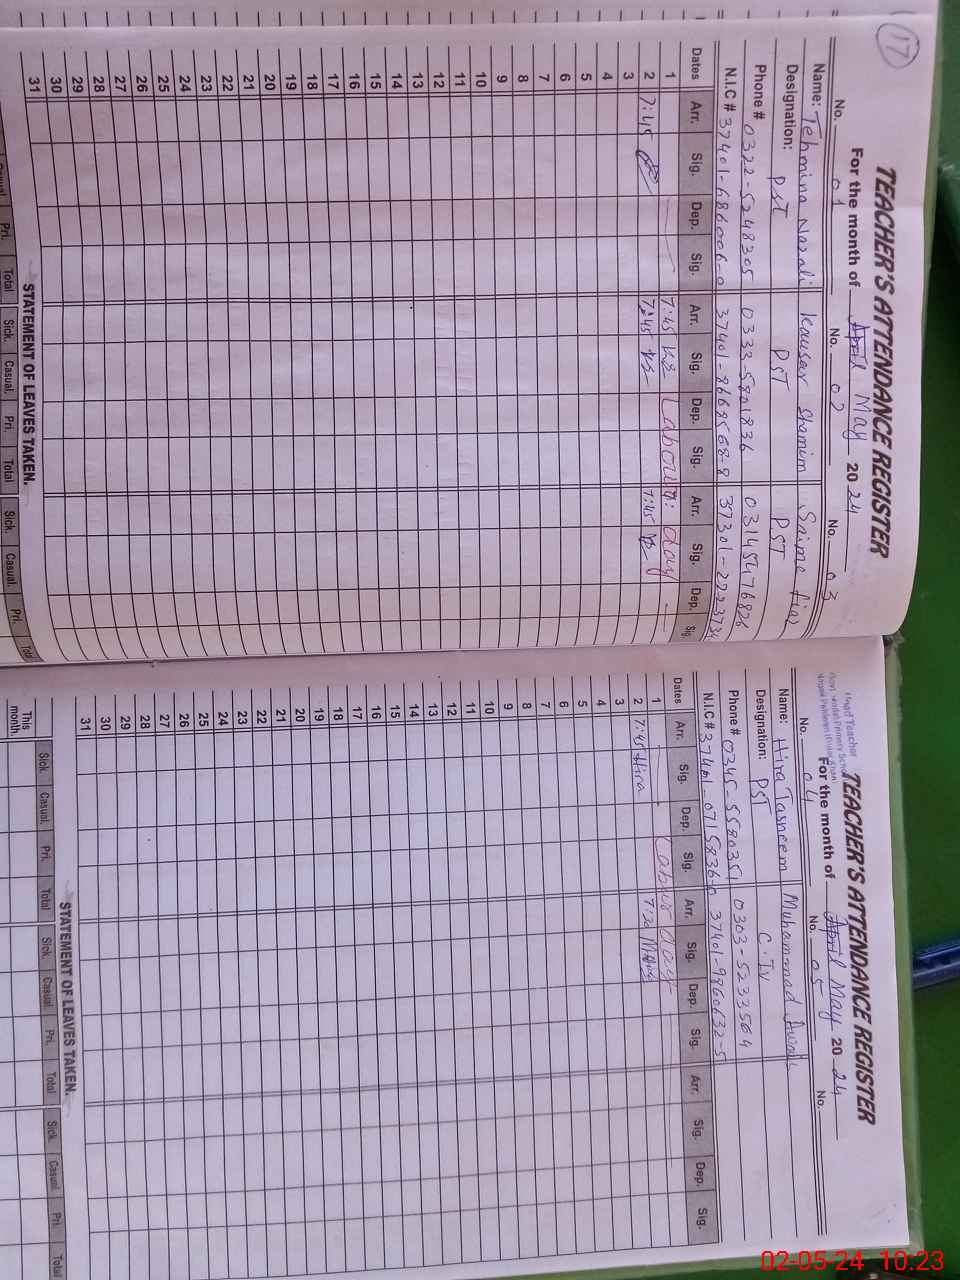 17
TEACHER'S ATTENDANCE REGISTER
For the month of April May 2024
No. 01 No. 02 No. 03
Name: Tehmina Nazali Kausar Shamim Saima fiaz
Designation: PST PST PST
Phone # 0322-5248305 0333-5801836 03145476826
N.I.C # 37401-6866006-0 37401-8668568-8 37301-2223734
Dates Arr. Sig. Dep. Sig. Arr. Sig. Dep. Sig. Arr. Sig. Dep. Sig.
1 7:45 Labour day
2 7:45 7:45 7:45
3
4
5
6
7
8
9
10
11
12
13
14
15
16
17
18
19
20
21
22
23
24
25
26
27
28
29
30
31
STATEMENT OF LEAVES TAKEN.
Casual. Pri. Total Sick. Casual. Pri. Total Sick. Casual. Pri. Total
Head Teacher
TEACHER'S ATTENDANCE REGISTER
For the month of April May 2024
No. 04 No. 05 No.
Name: Hira Tasneem Muhammad Awais
Designation: PST C.IV
Phone # 0345-5580351 0303-5233564
N.I.C # 37401-0715836-0 37401-9860632-5
Dates Arr. Sig. Dep. Sig. Arr. Sig. Dep. Sig. Arr. Sig. Dep. Sig.
1 Labour day
2 7:45 Hira 7:20
3
4
5
6
7
8
9
10
11
12
13
14
15
16
17
18
19
20
21
22
23
24
25
26
27
28
29
30
31
STATEMENT OF LEAVES TAKEN.
Sick. Casual. Pri. Total Sick. Casual. Pri. Total Sick. Casual Pri. Total
This month.
02-05-24 10:23